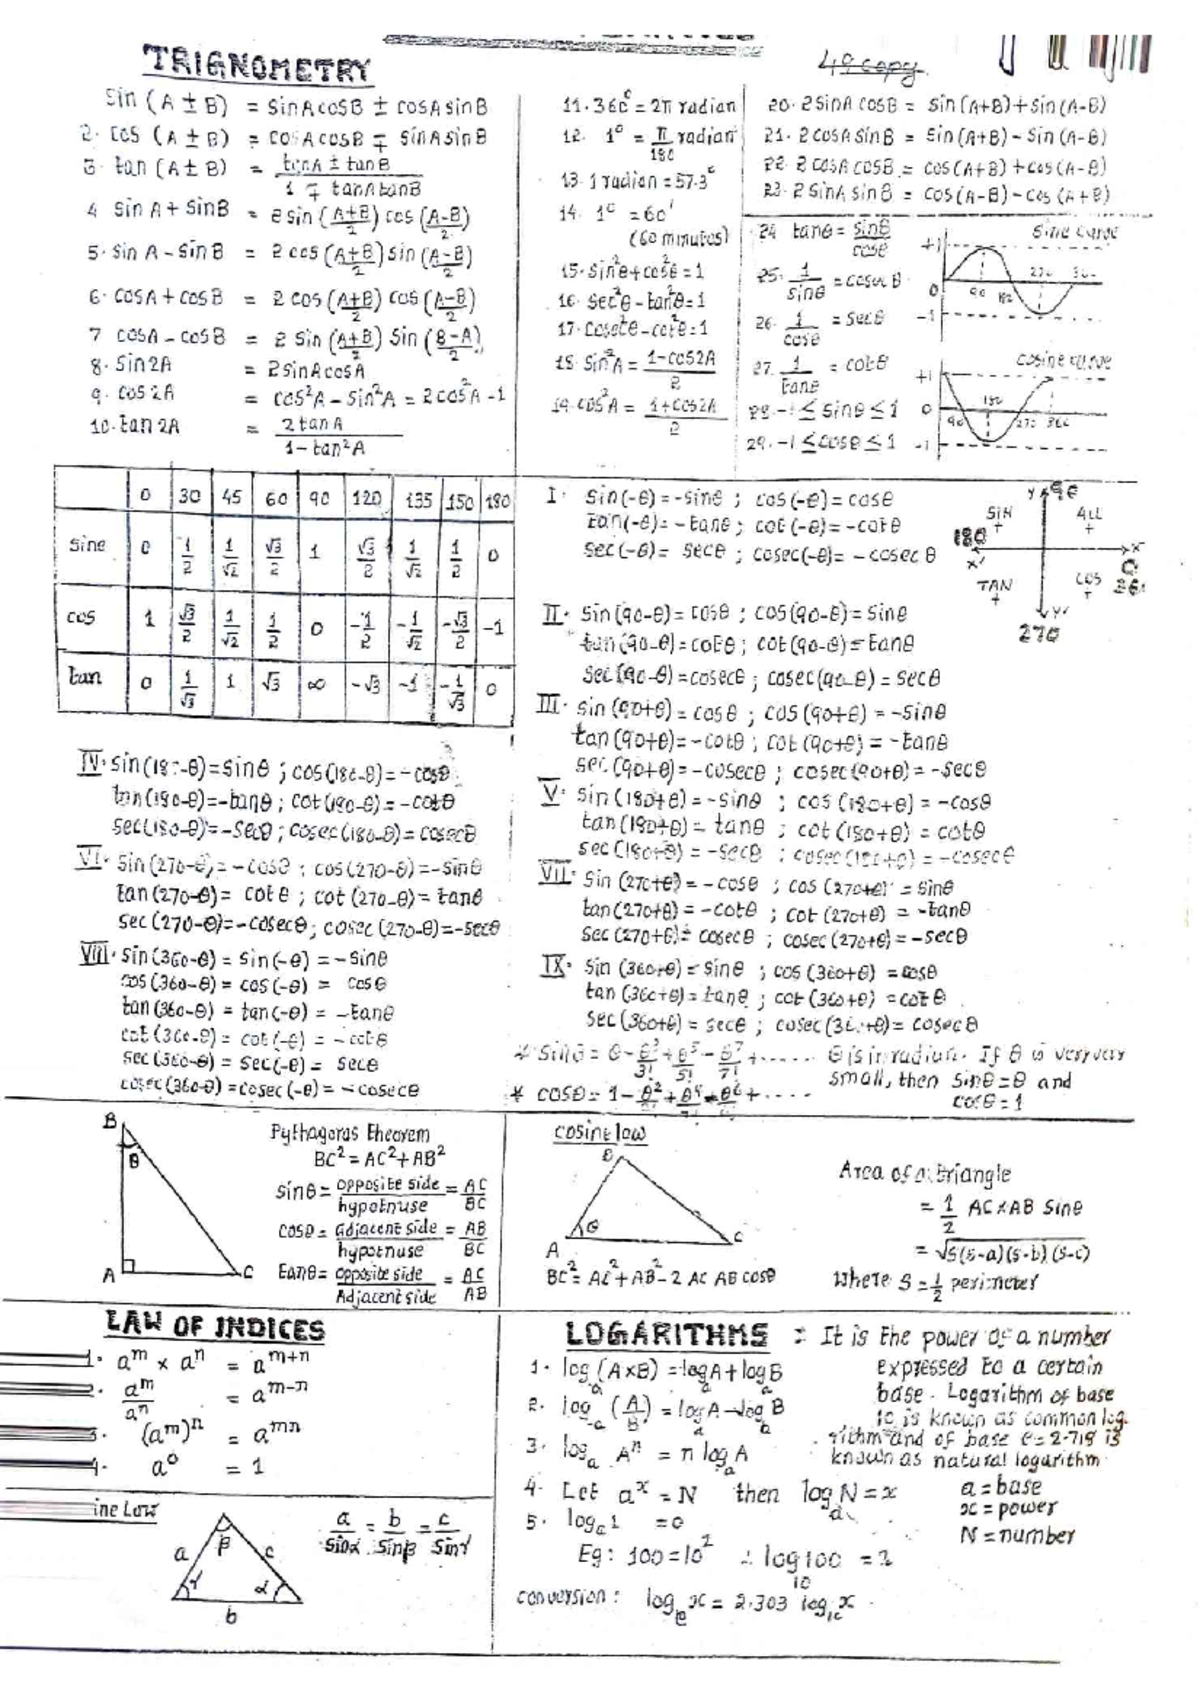 TRIGNOMETRY
49 copy
Sin (A ± B) = sinA cosB ± cosA sinB
2. cos (A ± B) = cosA cosB ∓ sinA sinB
3. tan (A ± B) = tanA ± tanB / 1 ∓ tanA tanB
4 sin A + sinB = 2 sin (A+B)/2 cos (A-B)/2
5. sin A - sin B = 2 cos (A+B)/2 sin (A-B)/2
6. cosA + cosB = 2 cos (A+B)/2 cos (A-B)/2
7 cosA - cosB = 2 sin (A+B)/2 sin (B-A)/2
8. sin2A = 2sinA cosA
9. cos2A = cos²A - sin²A = 2cos²A - 1
10. tan 2A = 2 tanA / 1 - tan²A
11. 360° = 2π radian
12. 1° = π/180 radian
13. 1 radian = 57.3°
14. 1° = 60'
(60 minutes)
15. sin²θ + cos²θ = 1
16. sec²θ - tan²θ = 1
17. cosec²θ - cot²θ = 1
18. sin²A = 1-cos2A / 2
19. cos²A = 1+cos2A / 2
20. 2sinA cosB = sin(A+B) + sin(A-B)
21. 2cosA sinB = sin(A+B) - sin(A-B)
22. 2cosA cosB = cos(A+B) + cos(A-B)
23. 2sinA sinB = cos(A-B) - cos(A+B)
24 tanθ = sinθ/cosθ
25. 1/sinθ = cosec θ
26. 1/cosθ = secθ
27. 1/tanθ = cotθ
28. -1 ≤ sinθ ≤ 1
29. -1 ≤ cosθ ≤ 1
Sine curve
+1
0 90 180 270 360
-1
cosine curve
+1
0 90 180 270 360
-1
0 30 45 60 90 120 135 150 180
sine 0 1/2 1/√2 √3/2 1 √3/2 1/√2 1/2 0
cos 1 √3/2 1/√2 1/2 0 -1/2 -1/√2 -√3/2 -1
tan 0 1/√3 1 √3 ∞ -√3 -1 -1/√3 0
I. sin(-θ) = -sinθ ; cos(-θ) = cosθ
tan(-θ) = -tanθ ; cot(-θ) = -cotθ
sec(-θ) = secθ ; cosec(-θ) = -cosec θ
Y 90
SIN + ALL +
180 X' X 0
TAN + COS +
Y'
270
II. sin(90-θ) = cosθ ; cos(90-θ) = sinθ
tan(90-θ) = cotθ ; cot(90-θ) = tanθ
sec(90-θ) = cosecθ ; cosec(90-θ) = secθ
III. sin(90+θ) = cosθ ; cos(90+θ) = -sinθ
tan(90+θ) = -cotθ ; cot(90+θ) = -tanθ
sec(90+θ) = -cosecθ ; cosec(90+θ) = -secθ
IV. sin(180-θ) = sinθ ; cos(180-θ) = -cosθ
tan(180-θ) = -tanθ ; cot(180-θ) = -cotθ
sec(180-θ) = -secθ ; cosec(180-θ) = cosecθ
V. sin(180+θ) = -sinθ ; cos(180+θ) = -cosθ
tan(180+θ) = tanθ ; cot(180+θ) = cotθ
sec(180+θ) = -secθ ; cosec(180+θ) = -cosecθ
VI. sin(270-θ) = -cosθ ; cos(270-θ) = -sinθ
tan(270-θ) = cotθ ; cot(270-θ) = tanθ
sec(270-θ) = -cosecθ ; cosec(270-θ) = -secθ
VII. sin(270+θ) = -cosθ ; cos(270+θ) = sinθ
tan(270+θ) = -cotθ ; cot(270+θ) = -tanθ
sec(270+θ) = cosecθ ; cosec(270+θ) = -secθ
VIII. sin(360-θ) = sin(-θ) = -sinθ
cos(360-θ) = cos(-θ) = cosθ
tan(360-θ) = tan(-θ) = -tanθ
cot(360-θ) = cot(-θ) = -cotθ
sec(360-θ) = sec(-θ) = secθ
cosec(360-θ) = cosec(-θ) = -cosecθ
IX. sin(360+θ) = sinθ ; cos(360+θ) = cosθ
tan(360+θ) = tanθ ; cot(360+θ) = cotθ
sec(360+θ) = secθ ; cosec(360+θ) = cosecθ
* sinθ = θ - θ³/3! + θ⁵/5! - θ⁷/7! + ..... θ is in radian. If θ is very very
small, then sinθ = θ and
cosθ = 1
* cosθ = 1 - θ² + θ⁴ - θ⁶ + ....
B
θ
A
C
Pythagoras theorem
BC² = AC² + AB²
sinθ = opposite side / hypotnuse = AC/BC
cosθ = Adjacent side / hypotnuse = AB/BC
tanθ = opposite side / Adjacent side = AC/AB
cosine law
B
θ
A
C
BC² = AC² + AB² - 2 AC AB cosθ
Area of a triangle
= 1/2 AC×AB Sinθ
= √s(s-a)(s-b)(s-c)
where S = 1/2 perimeter
LAW OF INDICES
1. aᵐ × aⁿ = aᵐ⁺ⁿ
2. aᵐ/aⁿ = aᵐ⁻ⁿ
3. (aᵐ)ⁿ = aᵐⁿ
4. a⁰ = 1
ine Law
a β c
γ α
b
a/sinα = b/sinβ = c/sinγ
LOGARITHMS : It is the power of a number
expressed to a certain
base. Logarithm of base
10 is known as common log.
rithm and of base e = 2.718 is
known as natural logarithm
1. logₐ(A×B) = logₐA + logₐB
2. logₐ(A/B) = logₐA - logₐB
3. logₐ Aⁿ = n logₐA
4. Let aˣ = N then logₐN = x
5. logₐ1 = 0
a = base
x = power
N = number
Eg: 100 = 10² ∴ log₁₀100 = 2
conversion: logₑx = 2.303 log₁₀x